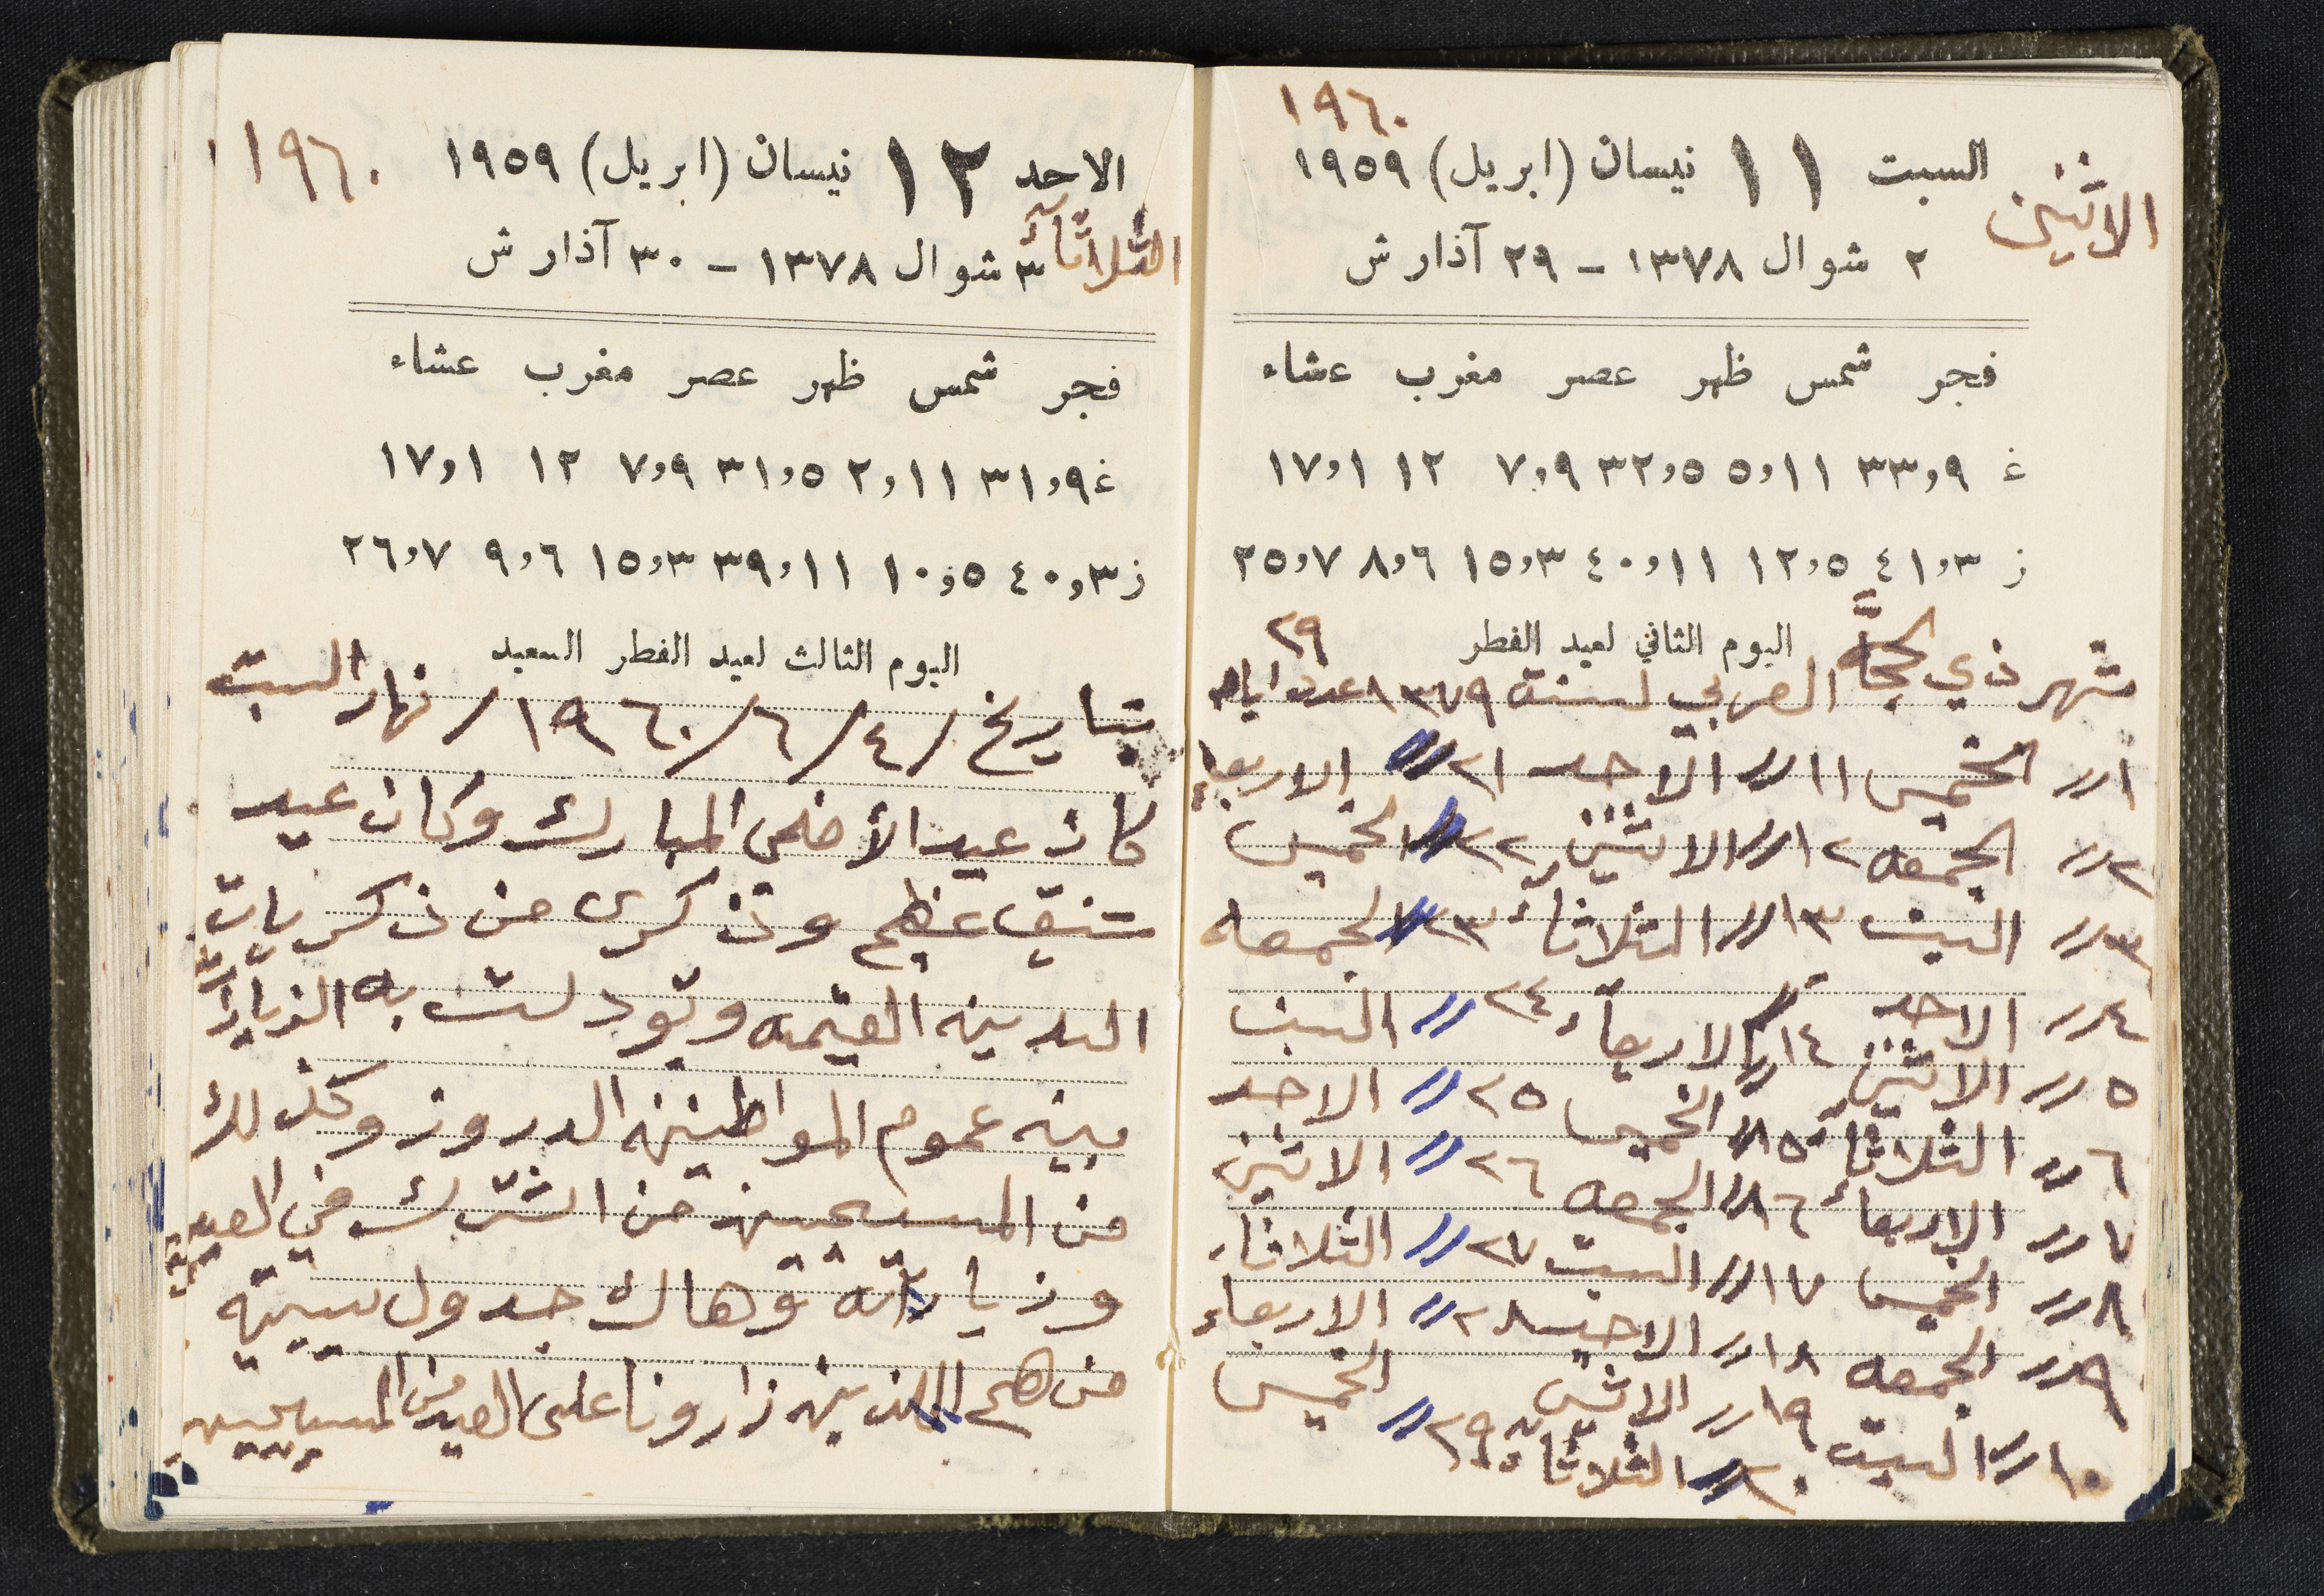 ١٩٦٠
الاثنين السبت ١١ نيسان (ابريل) ١٩٥٩
٢ شوال ١٣٧٨ - ٢٩ آذار ش
فجر شمس ظهر عصر مغرب عشاء
غ ٣٣,٩ ٥,١١ ٣٢,٥ ٧,٩ ١٢ ١٧,١
ز ٤١,٣ ١٢,٥ ٤٠,١١ ١٥,٣ ٨,٦ ٢٥,٧
اليوم الثاني لعيد الفطر ٢٩
شهر ذي الحجة العربي لسنة ١٣٧٩ عدد ايام
١ // الخميس ١١ // الاحد ٢١ // الاربعاء
٢ // الجمعه ١٢ // الاثنين ٢٢ // الخميس
٣ // السبت ١٣ // الثلاثاء ٢٣ // الجمعه
٤ // الاحد ١٤ // الاربعاء ٢٤ // السبت
٥ // الاثنين ١٥ // الخميس ٢٥ // الاحد
٦ // الثلاثاء ١٦ // الجمعه ٢٦ // الاثنين
٧ // الاربعاء ١٧ // السبت ٢٧ // الثلاثاء
٨ // الخميس ١٨ // الاحد ٢٨ // الاربعاء
٩ // الجمعه ١٩ // الاثنين ٢٩ // الخميس
١٠ // السبت ٢٠ // الثلاثاء
الاحد ١٢ نيسان (ابريل) ١٩٥٩ ١٩٦٠
الثلاثآء ٣ شوال ١٣٧٨ - ٣٠ آذار ش
فجر شمس ظهر عصر مغرب عشاء
غ ٣١,٩ ٢,١١ ٣١,٥ ٧,٩ ١٢ ١٧,١
ز ٤٠,٣ ١٠,٥ ٣٩,١١ ١٥,٣ ٩,٦ ٢٦,٧
اليوم الثالث لعيد الفطر السعيد
بتاريخ /٤/٦/١٩٦٠/ نهار السبت
كان عيد الأضحى المبارك وكان عيد
شيق عظيم وذكرى من ذكريات
الدينه القيمه وتودلت به الزيارات
بينه عموم المواطنين الدروز وكذلك
من المسيحيين من اشترك في العيد
وزياراته وهاك جدول سيبينه
من هم اللذين زارونا على العيد من المسيحيين